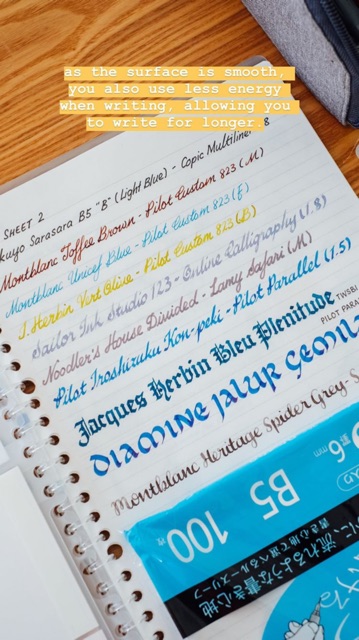 as the surface is smooth,
you also use less energy
when writing, allowing you
to write for longer.
SHEET 2
kuyo Sarasara B5 "B" (Light Blue) - Copic Multiliner .8
Montblanc Toffee Brown - Pilot Custom 823 (M)
Montblanc Unicef Blue - Pilot Custom 823 (F)
J. Herbin Vert Olive - Pilot Custom 823 (B)
Sailor Ink Studio 123 - Online Calligraphy (1.8)
Noodler's House Divided - Lamy Safari (M)
Pilot Iroshizuku Kon-peki - Pilot Parallel (1.5)
Jacques Herbin Bleu Plenitude
TWSBI
PILOT PARA
Diamine Jalur Gemil
Montblanc Heritage Spider Grey - S
6 mm
B5
100
流れるような書き心地
さらさら書けるルーズリーフ